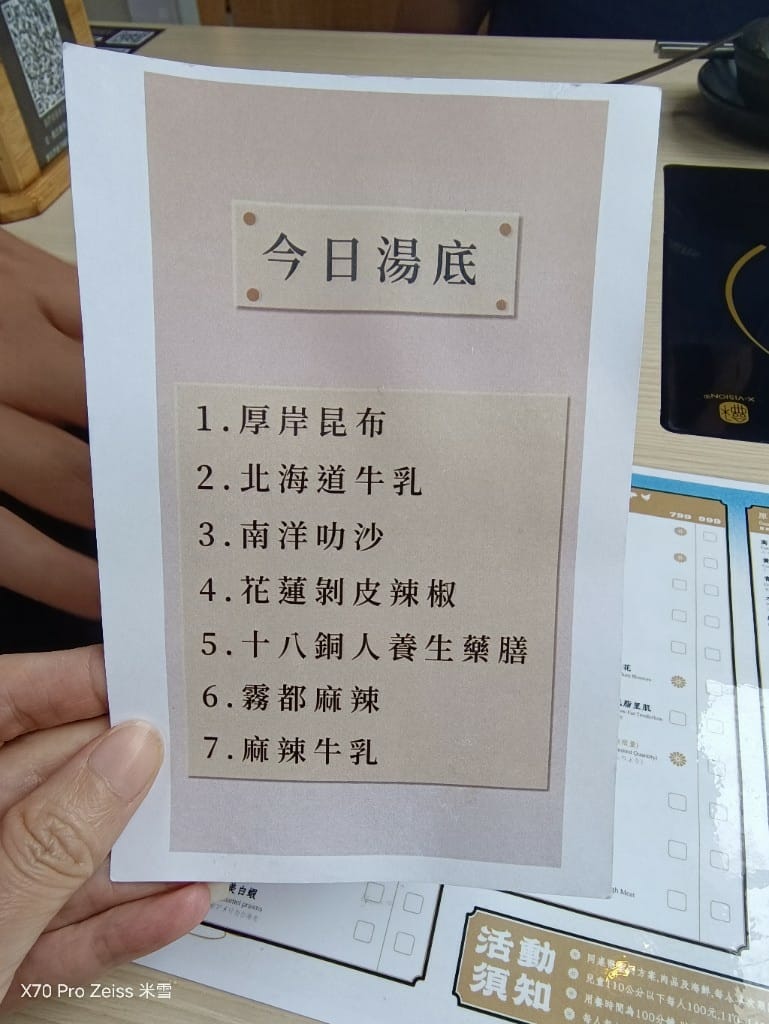 今日湯底
1.厚岸昆布
2.北海道牛乳
3.南洋叻沙
4.花蓮剝皮辣椒
5.十八銅人養生藥膳
6.霧都麻辣
7.麻辣牛乳
799 999
X-VISION
美白蝦
活動
須知
X70 Pro Zeiss 米雪